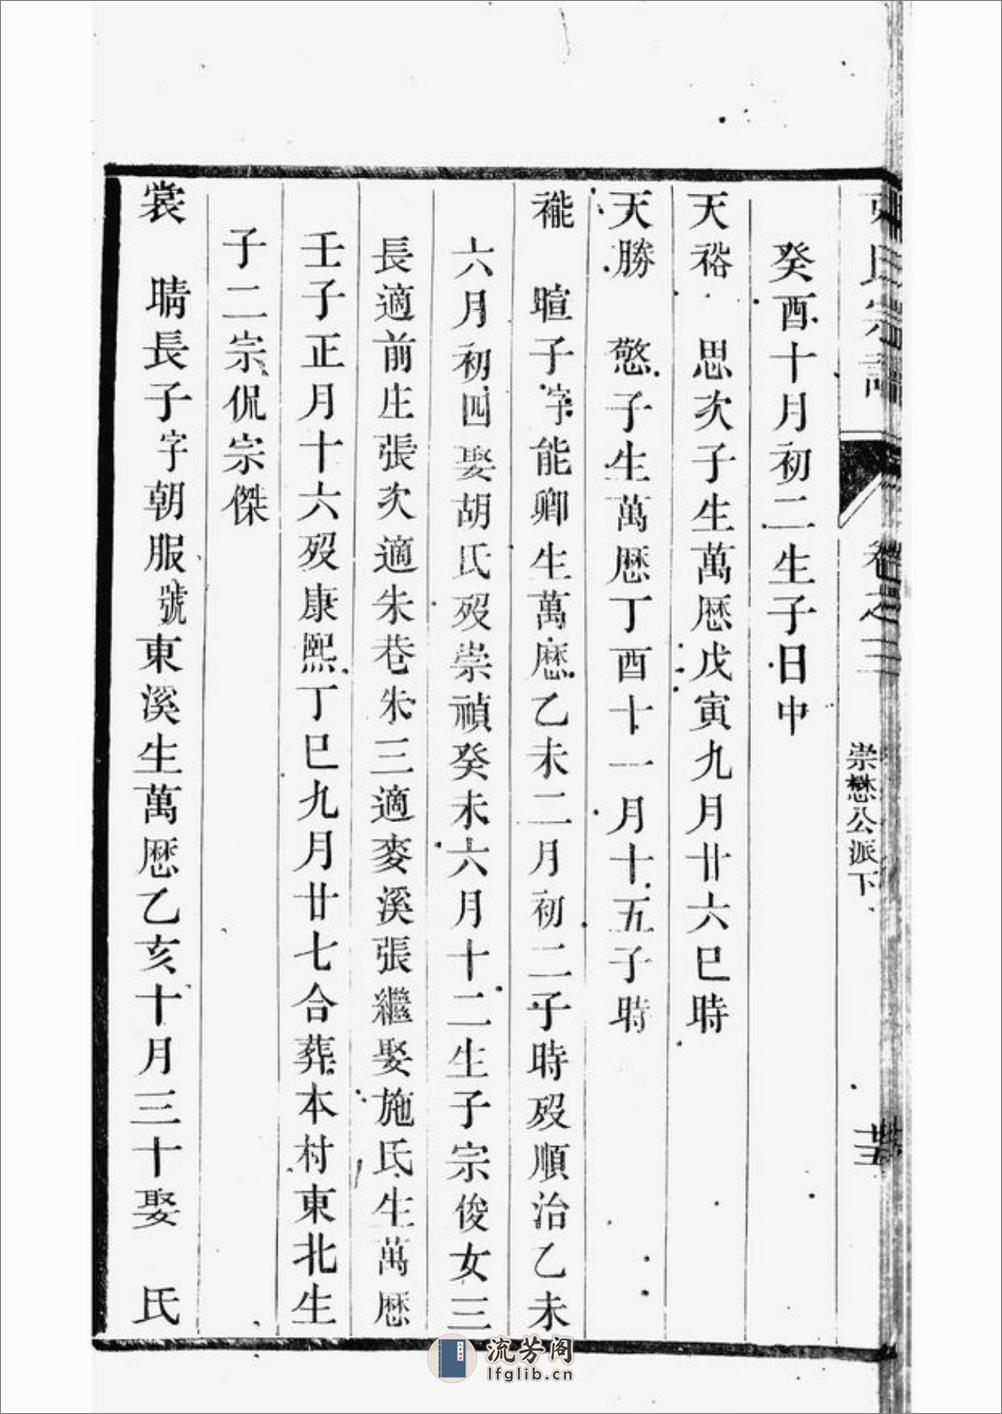 氏宗譜 卷之三 崇懋公派下
癸酉十月初二生子日中
天裕 思次子生萬厯戊寅九月廿六巳時
天勝 憼子生萬厯丁酉十一月十五子時
暄子字能卿生萬厯乙未二月初二子時殁順治乙未
六月初四娶胡氏殁崇禎癸未六月十二生子宗俊女三
長適前庄張次適朱巷朱三適麥溪張繼娶施氏生萬厯
壬子正月十六殁康熙丁巳九月廿七合葬本村東北生
子二宗侃宗傑
裳 晴長子字朝服號東溪生萬厯乙亥十月三十娶 氏
流芳阁
lfglib.cn